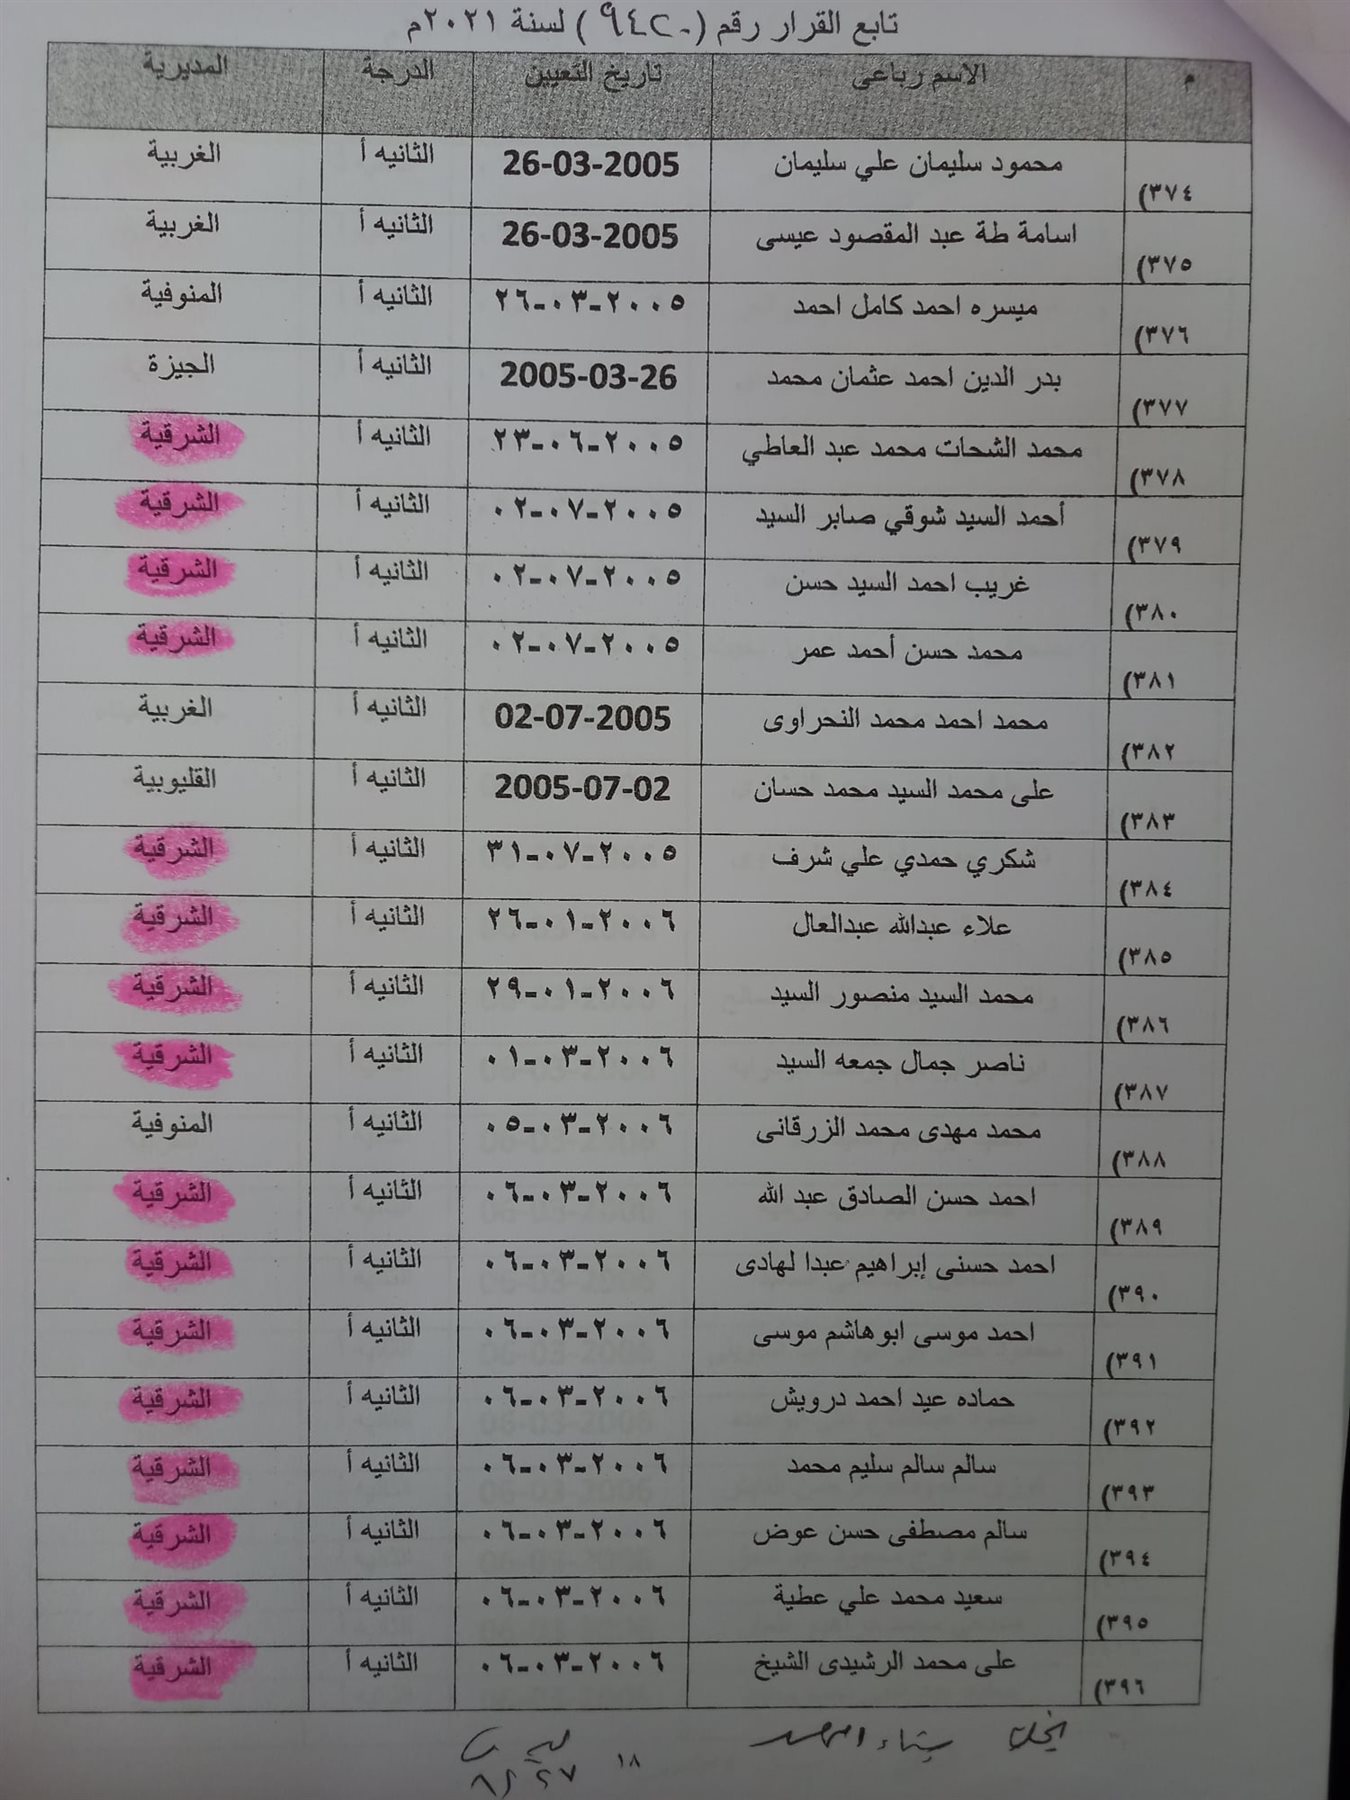 تابع القرار رقم ( ٩٤٢٠ ) لسنة ٢٠٢١م
م الاسم رباعى تاريخ التعيين الدرجة المديرية
٣٧٤) محمود سليمان علي سليمان 26-03-2005 الثانيه أ الغربية
٣٧٥) اسامة طة عبد المقصود عيسى 26-03-2005 الثانيه أ الغربية
٣٧٦) ميسره احمد كامل احمد ٢٦-٠٣-٢٠٠٥ الثانيه أ المنوفية
٣٧٧) بدر الدين احمد عثمان محمد 2005-03-26 الثانيه أ الجيزة
٣٧٨) محمد الشحات محمد عبد العاطي ٢٣-٠٦-٢٠٠٥ الثانيه أ الشرقية
٣٧٩) أحمد السيد شوقي صابر السيد ٠٢-٠٧-٢٠٠٥ الثانيه أ الشرقية
٣٨٠) غريب احمد السيد حسن ٠٢-٠٧-٢٠٠٥ الثانيه أ الشرقية
٣٨١) محمد حسن أحمد عمر ٠٢-٠٧-٢٠٠٥ الثانيه أ الشرقية
٣٨٢) محمد احمد محمد النحراوى 02-07-2005 الثانيه أ الغربية
٣٨٣) على محمد السيد محمد حسان 2005-07-02 الثانيه أ القليوبية
٣٨٤) شكري حمدي علي شرف ٣١-٠٧-٢٠٠٥ الثانيه أ الشرقية
٣٨٥) علاء عبدالله عبدالعال ٢٦-٠١-٢٠٠٦ الثانيه أ الشرقية
٣٨٦) محمد السيد منصور السيد ٢٩-٠١-٢٠٠٦ الثانيه أ الشرقية
٣٨٧) ناصر جمال جمعه السيد ٠١-٠٣-٢٠٠٦ الثانيه أ الشرقية
٣٨٨) محمد مهدى محمد الزرقانى ٠٥-٠٣-٢٠٠٦ الثانيه أ المنوفية
٣٨٩) احمد حسن الصادق عبد الله ٠٦-٠٣-٢٠٠٦ الثانيه أ الشرقية
٣٩٠) احمد حسنى إبراهيم عبدا لهادى ٠٦-٠٣-٢٠٠٦ الثانيه أ الشرقية
٣٩١) احمد موسى ابوهاشم موسى ٠٦-٠٣-٢٠٠٦ الثانيه أ الشرقية
٣٩٢) حماده عيد احمد درويش ٠٦-٠٣-٢٠٠٦ الثانيه أ الشرقية
٣٩٣) سالم سالم سليم محمد ٠٦-٠٣-٢٠٠٦ الثانيه أ الشرقية
٣٩٤) سالم مصطفى حسن عوض ٠٦-٠٣-٢٠٠٦ الثانيه أ الشرقية
٣٩٥) سعيد محمد علي عطية ٠٦-٠٣-٢٠٠٦ الثانيه أ الشرقية
٣٩٦) على محمد الرشيدى الشيخ ٠٦-٠٣-٢٠٠٦ الثانيه أ الشرقية
١٨